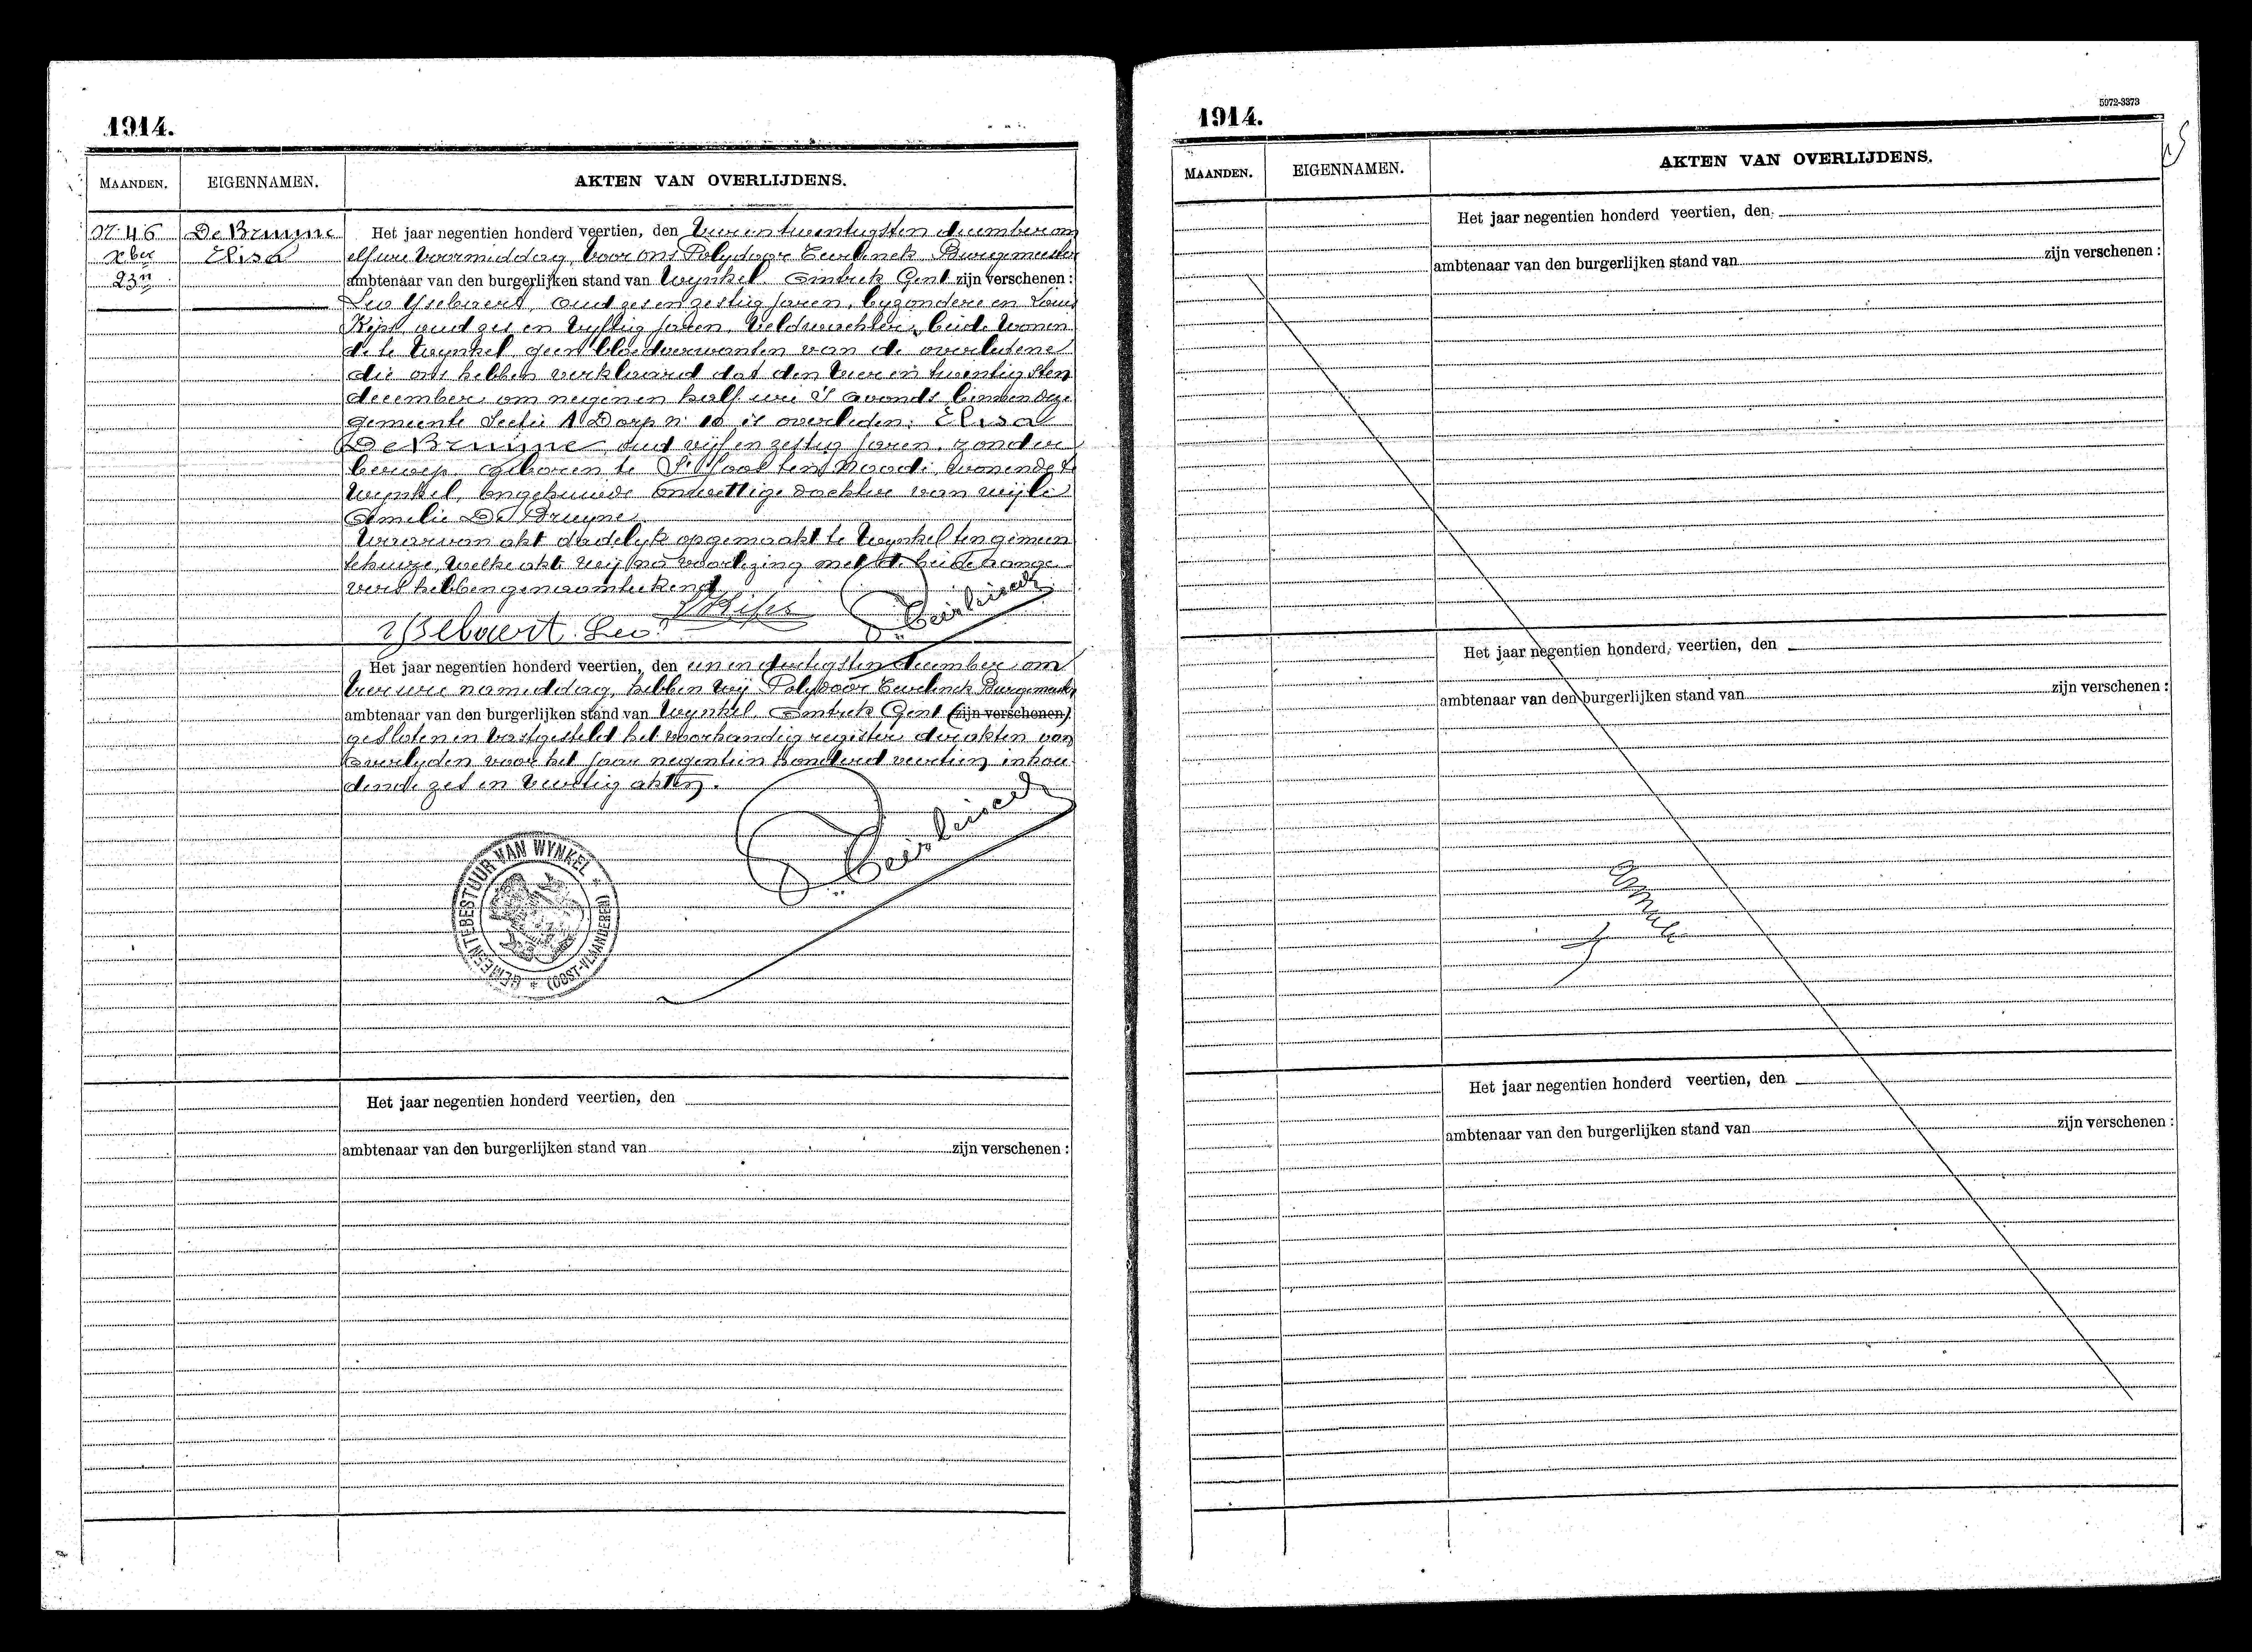 1914.
MAANDEN. EIGENNAMEN. AKTEN VAN OVERLIJDENS.
N. 46 De Bruyne Het jaar negentien honderd veertien, den vier en twentigsten december om
xber Elisa elf ure voormiddag, voor ons Polydoor Eeurlinck Burgemeester
23n ambtenaar van den burgerlijken stand van Wynkel. Omtrek Gent zijn verschenen :
Leo Ysebaert, oud zes en zestig jaren, byzondere en Louis
Kips, oud zes en vyftig jaren, veldwachter, beide wonen
de te Wynkel geen bloedverwanten van de overledene
die ons hebben verklaard dat den vier en twentigsten
december om negen en half ure 's avonds binnen deze
gemeente Sectie A Dorp n. 10 is overleden: Elisa
De Bruyne, oud vijf en zestig jaren. zonder
beroep. geboren te St Joost ten Noode, wonende te
Wynkel, ongehuwde onwettige dochter van wijle
Amelie De Bruyne
Waarvan akt dadelyk opgemaakt te Wynkel ten gemeen
tehuize, welke akt wij na voorlezing met de beide aange-
vers hebben genaamteekend
L Kips
Ysebaert Leo.
Het jaar negentien honderd veertien, den een en dertigsten december om
vier ure namiddag, hebben wij Polydoor Eeurlinck Burgemeester
ambtenaar van den burgerlijken stand van Wynkel. Omtrek Gent (zijn verschenen)
gesloten en vastgesteld het voorhandig register der akten van
overlyden voor het jaar negentien honderd veertien, inhou
dende zes en veertig akten.
GEMEENTEBESTUUR VAN WYNKEL * (OOST-VLAANDEREN) *
Het jaar negentien honderd veertien, den
ambtenaar van den burgerlijken stand van zijn verschenen :
5972-3373
1914.
MAANDEN. EIGENNAMEN. AKTEN VAN OVERLIJDENS.
Het jaar negentien honderd veertien, den
ambtenaar van den burgerlijken stand van zijn verschenen :
Het jaar negentien honderd, veertien, den
ambtenaar van den burgerlijken stand van zijn verschenen :
annulé
Het jaar negentien honderd veertien, den
ambtenaar van den burgerlijken stand van zijn verschenen :